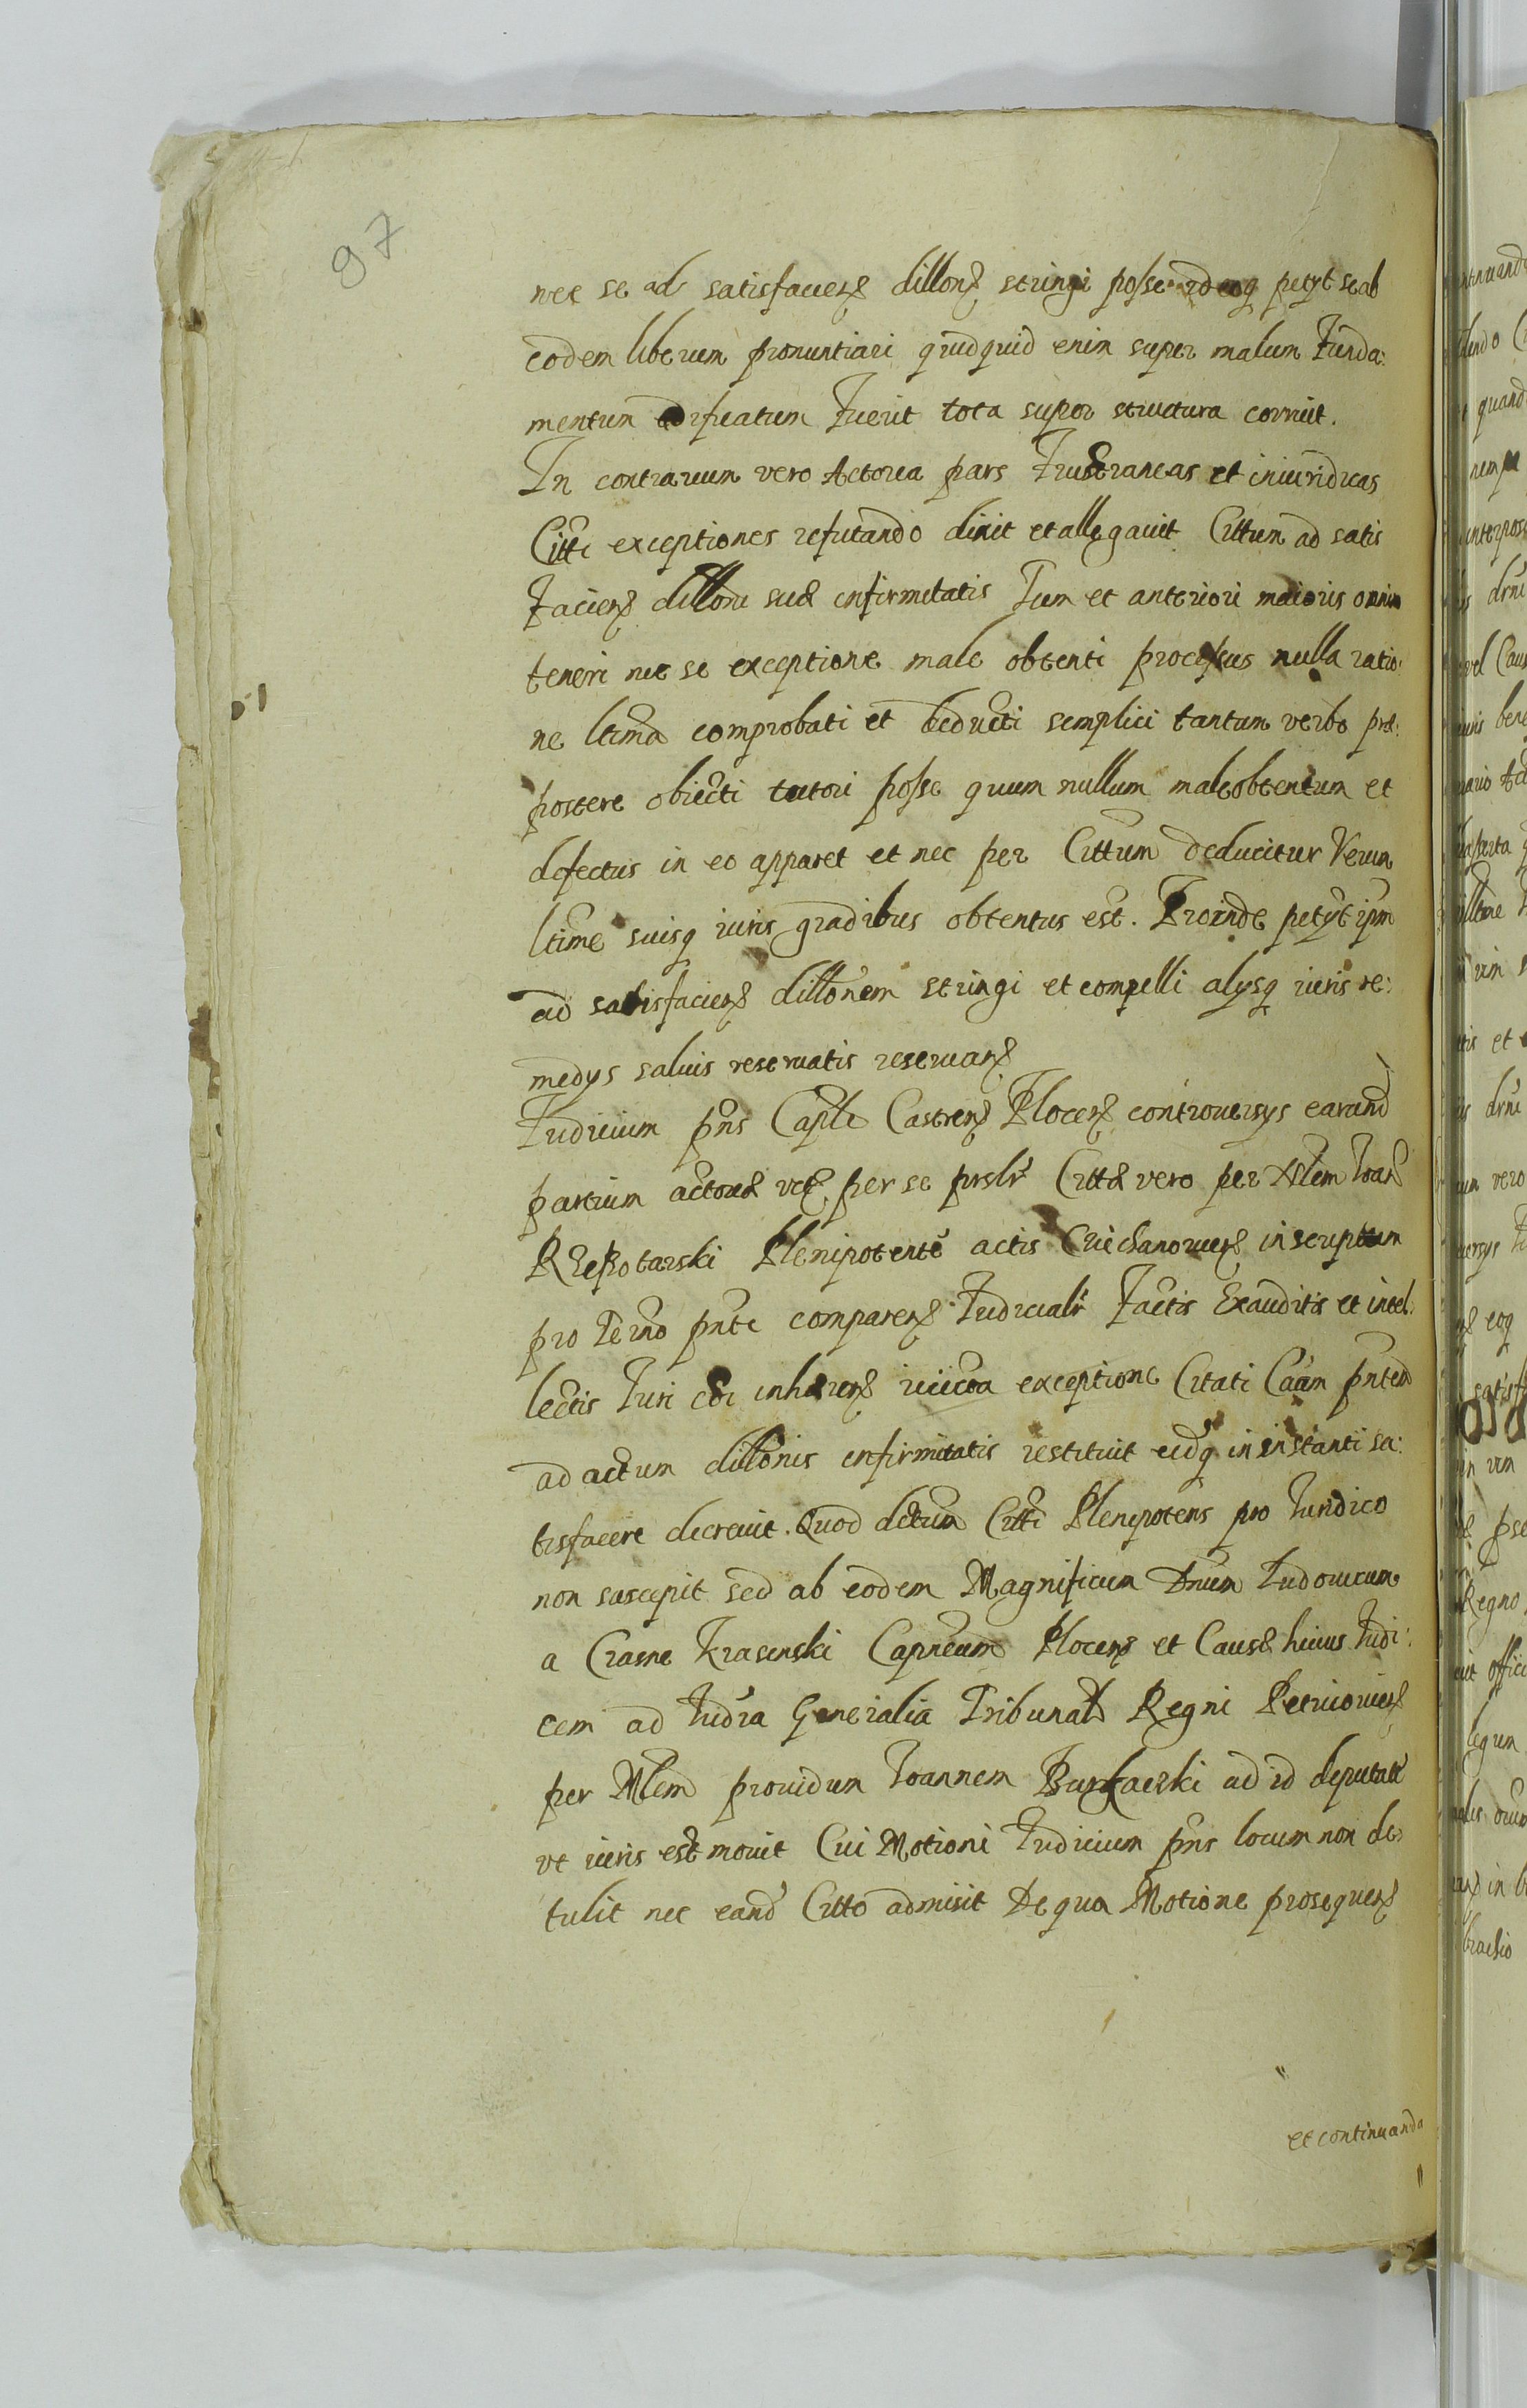 97
nec se ad satisfaciens dillons stringi posse ideoq petyt se ab
eodem liberum pronuntiari quidquid enim super malum Funda:
mentum ædificatum Fuerit tota super structura corruit.
In contrarium vero Actorea pars Frustraneas et iniuridicas
Citti exceptiones refutando dixit et allegavit Cittum ad satis
Faciens dilloni suæ infirmitatis Tum et anteriori maioris omnino
teneri nec se exceptione male obtenti processus nulla ratio:
ne ltima comprobati et deducti semplici tantum verbo præ:
postere obiecti tutori posse quum nullum male obtentum et
defectus in eo apparet et nec per Cittum deducitur Verum
ltime suisq iuris gradibus obtentus est. Proinde petyt ipm
ad satisfaciens dillonem stringi et compelli alysq iuris re:
medys salvis reservatis reservans
Iudicium pns Caple Castrens Plocens controversys earand
partium actoreæ per se prslr Cittæ vero per Nlem Ioan
Rzeszotarski Plenipotente actis Ciechanoviens inscriptum
pro Terno pnte comparens Iudicialr Factis Exauditis et intel:
lectis Iuri coi inhærens exceptione Citati Caam pntem
ad actum dillonis infirmitatis restituit eidq in instanti sa:
tisfacere decrevit. Quod dctum Citti Plenipotens pro Iuridico
non suscepit sed ab eodem Magnificum Dnum Ludovicum
a Crasne Krasinski Capneum Plocens et Causæ huius Iudi:
cem ad Iudia Generalia Tribunal Regni Petricoviens
per Mlem providum Ioannem ad id deputat
ut iuris est movit Cui Motioni Iudicium pns locum non de:
tulit nec eand Citto admisit De qua Motione prosequens
et continuanda